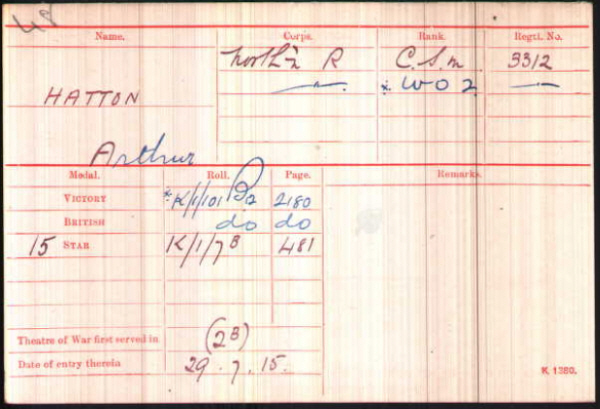 48
Name. Corps. Rank. Regtl. No.
North'n R C.S.M 3312
HATTON * W O 2
Arthur
Medal. Roll. Page. Remarks.
VICTORY * K/1/101 B2 2180
BRITISH do do
15 STAR K/1/7 B 481
Theatre of War first served in (2B)
Date of entry therein 29.7.15.
K 1380.